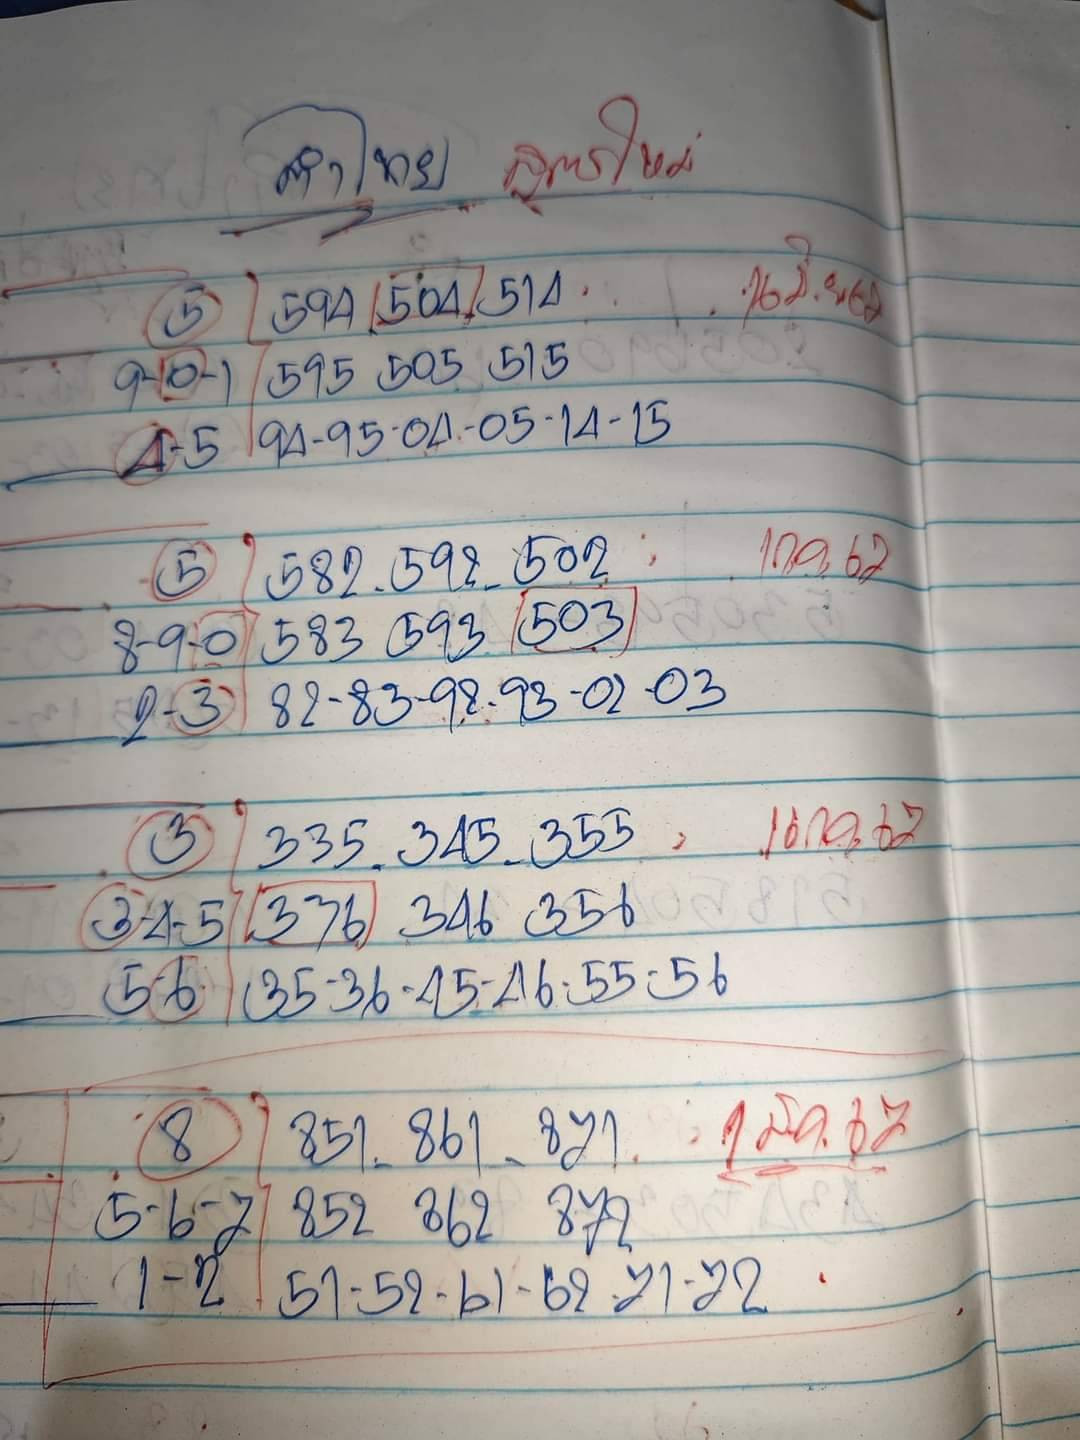 ทำไทย สูตรใหม่
5 594 504 514 16 มิ.ย 67
9-0-1 595 505 515
4-5 94-95-04-05-14-15
5 582-592-502 1 ก.ค. 67
8-9-0 583 593 503
2-3 82-83-92-93-02-03
3 335-345-355 16 ก.ค. 67
3-4-5 336 346 356
5-6 35-36-45-46-55-56
8 851-861-871 67
5-6-7 852 862 872
1-2 51-52-61-62-71-72